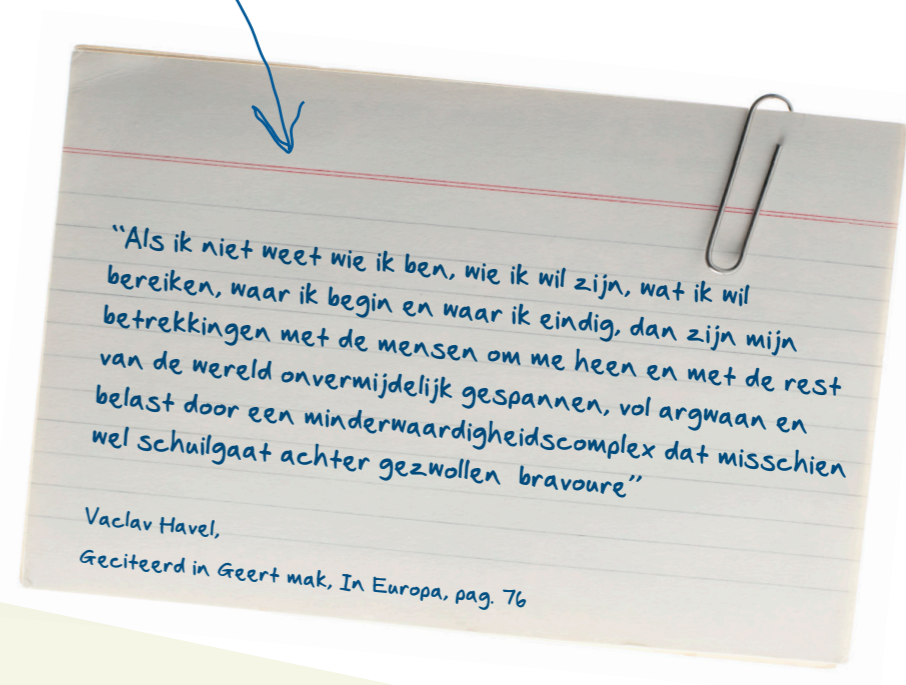 “Als ik niet weet wie ik ben, wie ik wil zijn, wat ik wil
bereiken, waar ik begin en waar ik eindig, dan zijn mijn
betrekkingen met de mensen om me heen en met de rest
van de wereld onvermijdelijk gespannen, vol argwaan en
belast door een minderwaardigheidscomplex dat misschien
wel schuilgaat achter gezwollen bravoure”
Vaclav Havel,
Geciteerd in Geert mak, In Europa, pag. 76